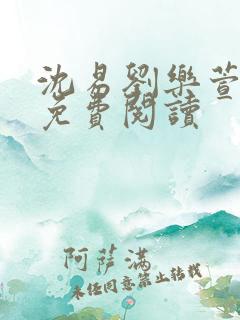 沈易劉樂萱
免費閱讀
阿萨满
未经同意禁止转载